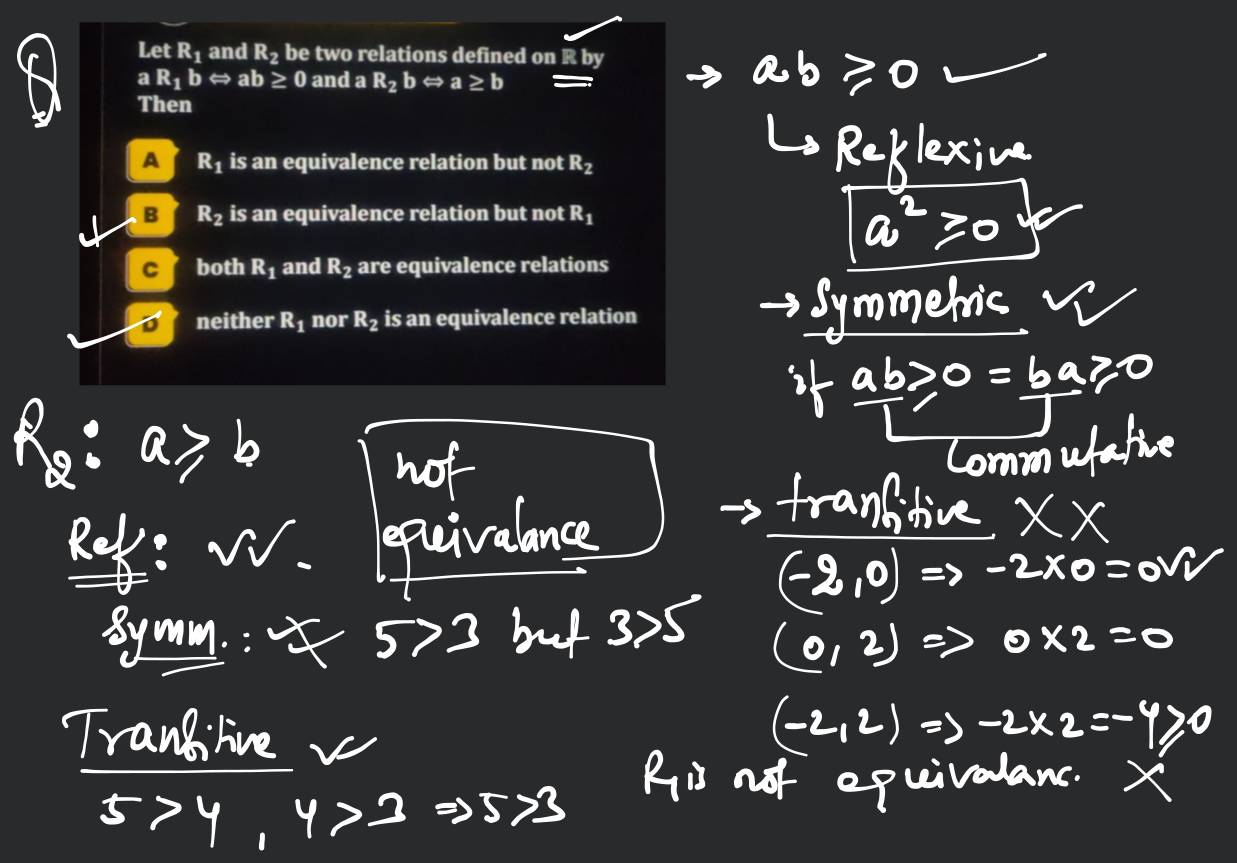 Q
Let R₁ and R₂ be two relations defined on ℝ by
a R₁ b ⇔ ab ≥ 0 and a R₂ b ⇔ a ≥ b
Then
A R₁ is an equivalence relation but not R₂
B R₂ is an equivalence relation but not R₁
C both R₁ and R₂ are equivalence relations
D neither R₁ nor R₂ is an equivalence relation
→ ab ≥ 0 ✓
↳ Reflexive
a² ≥ 0 ✓
→ Symmetric ✓
if ab ≥ 0 = ba ≥ 0
Commutative
→ transitive ✗✗
(-2,0) => -2×0=0 ✓
(0,2) => 0×2=0
(-2,2) => -2×2=-4≥0
R₁ is not equivalanc. ✗
R₂: a ≥ b
not
equivalance
Ref: ✓✓.
Symm.: ✗ 5>3 but 3>5
Transitive ✓
5>4, 4>3 ⇒ 5>3